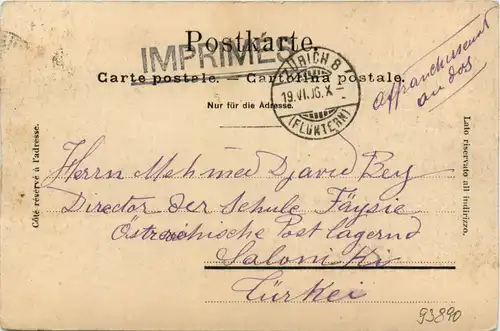 Postkarte.
IMPRIMÉS
Carte postale. – Cartolina postale.
Nur für die Adresse.
ZÜRICH 8
19.VI.06.X–
(FLUNTERN)
Affranchissement
au dos
Côté réservé à l'adresse.
Lato riservato all indirizzo.
Herrn Mehmed Djavid Bey
Director der Schule Fäysie
Östreichische Post lagernd
Saloniki
Türkei
93890